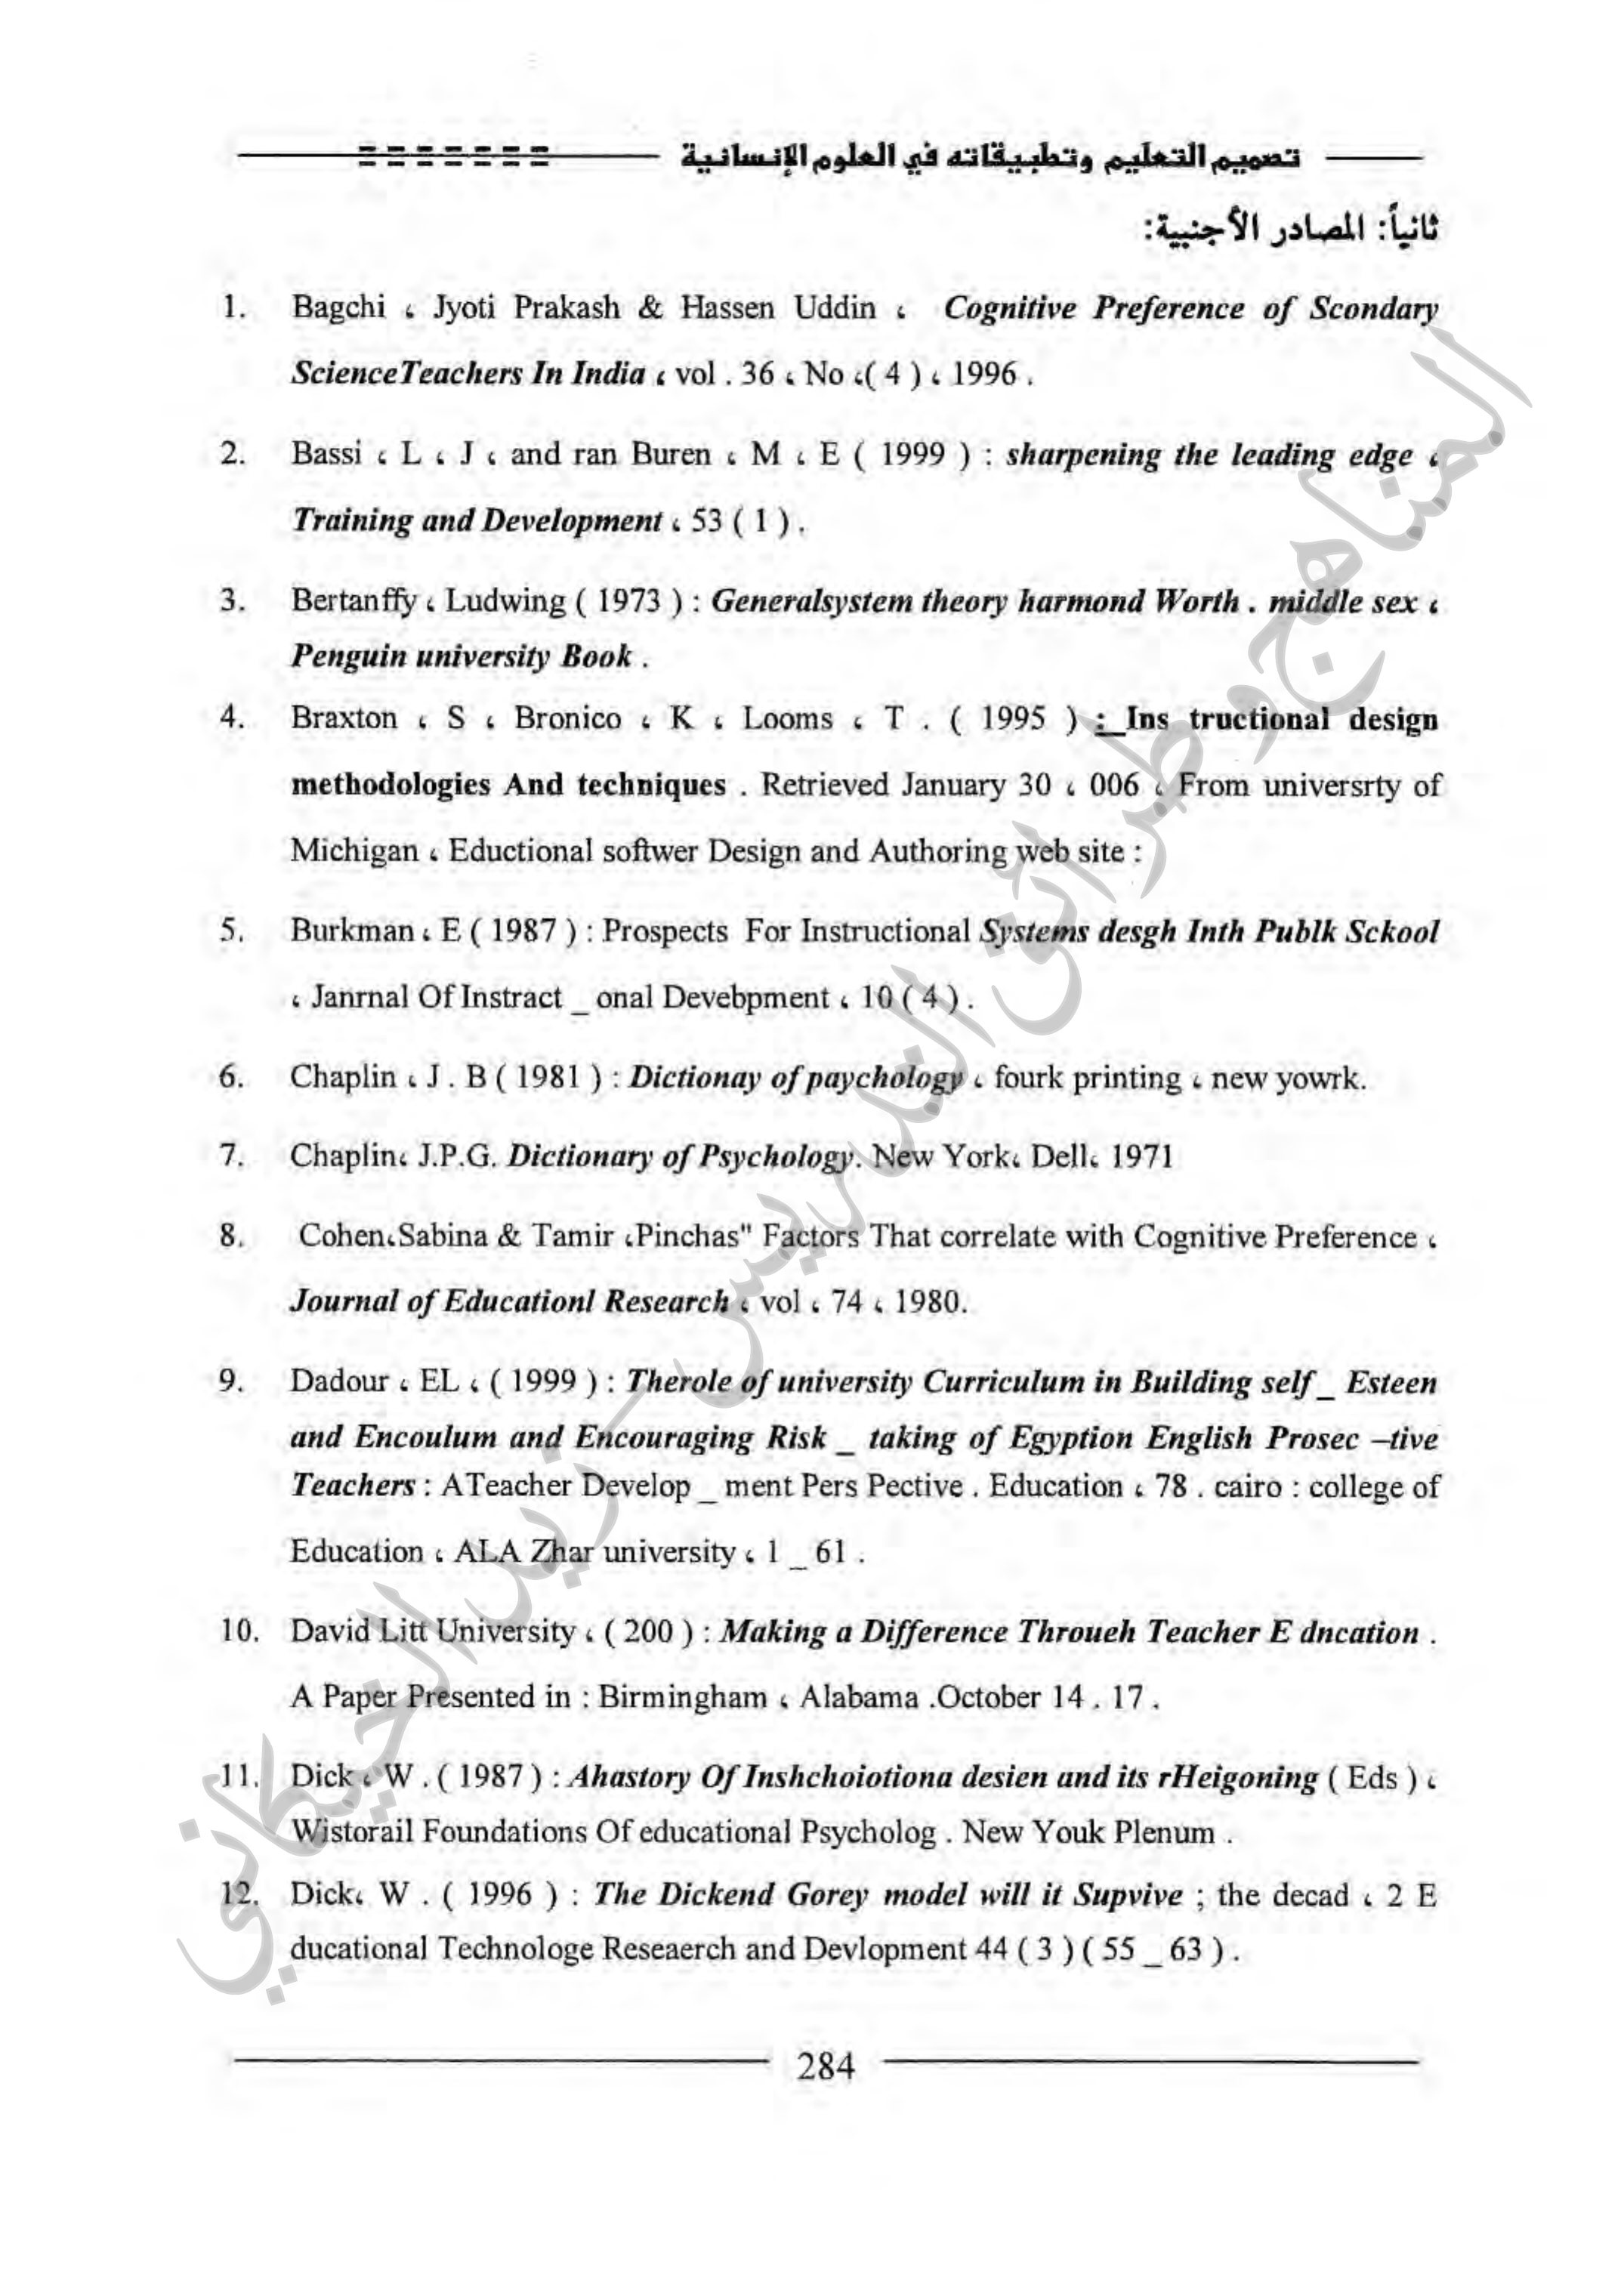 تصميم التعليم وتطبيقاته في العلوم الإنسانية
ثانياً: المصادر الأجنبية:
1. Bagchi ، Jyoti Prakash & Hassen Uddin ، Cognitive Preference of Scondary
ScienceTeachers In India ، vol . 36 ، No ،( 4 ) ، 1996 .
2. Bassi ، L ، J ، and ran Buren ، M ، E ( 1999 ) : sharpening the leading edge ،
Training and Development ، 53 ( 1 ) .
3. Bertanffy ، Ludwing ( 1973 ) : Generalsystem theory harmond Worth . middle sex ،
Penguin university Book .
4. Braxton ، S ، Bronico ، K ، Looms ، T . ( 1995 ) :_Ins tructional design
methodologies And techniques . Retrieved January 30 ، 006 ، From universrty of
Michigan ، Eductional softwer Design and Authoring web site :
5. Burkman ، E ( 1987 ) : Prospects For Instructional Systems desgh Inth Publk Sckool
، Janrnal Of Instract _ onal Devebpment ، 10 ( 4 ) .
6. Chaplin ، J . B ( 1981 ) : Dictionay of paychology ، fourk printing ، new yowrk.
7. Chaplin، J.P.G. Dictionary of Psychology. New York، Dell، 1971
8. Cohen،Sabina & Tamir ،Pinchas" Factors That correlate with Cognitive Preference ،
Journal of Educationl Research ، vol ، 74 ، 1980.
9. Dadour ، EL ، ( 1999 ) : Therole of university Curriculum in Building self _ Esteen
and Encoulum and Encouraging Risk _ taking of Egyption English Prosec –tive
Teachers : ATeacher Develop _ ment Pers Pective . Education ، 78 . cairo : college of
Education ، ALA Zhar university ، 1 _ 61 .
10. David Litt University ، ( 200 ) : Making a Difference Throueh Teacher E dncation .
A Paper Presented in : Birmingham ، Alabama .October 14 . 17 .
11. Dick ، W . ( 1987 ) : Ahastory Of Inshchoiotiona desien and its rHeigoning ( Eds ) ،
Wistorail Foundations Of educational Psycholog . New Youk Plenum .
12. Dick، W . ( 1996 ) : The Dickend Gorey model will it Supvive ; the decad ، 2 E
ducational Technologe Reseaerch and Devlopment 44 ( 3 ) ( 55 _ 63 ) .
284
المناهج وطرائق التدريس – زيد الخيكاني